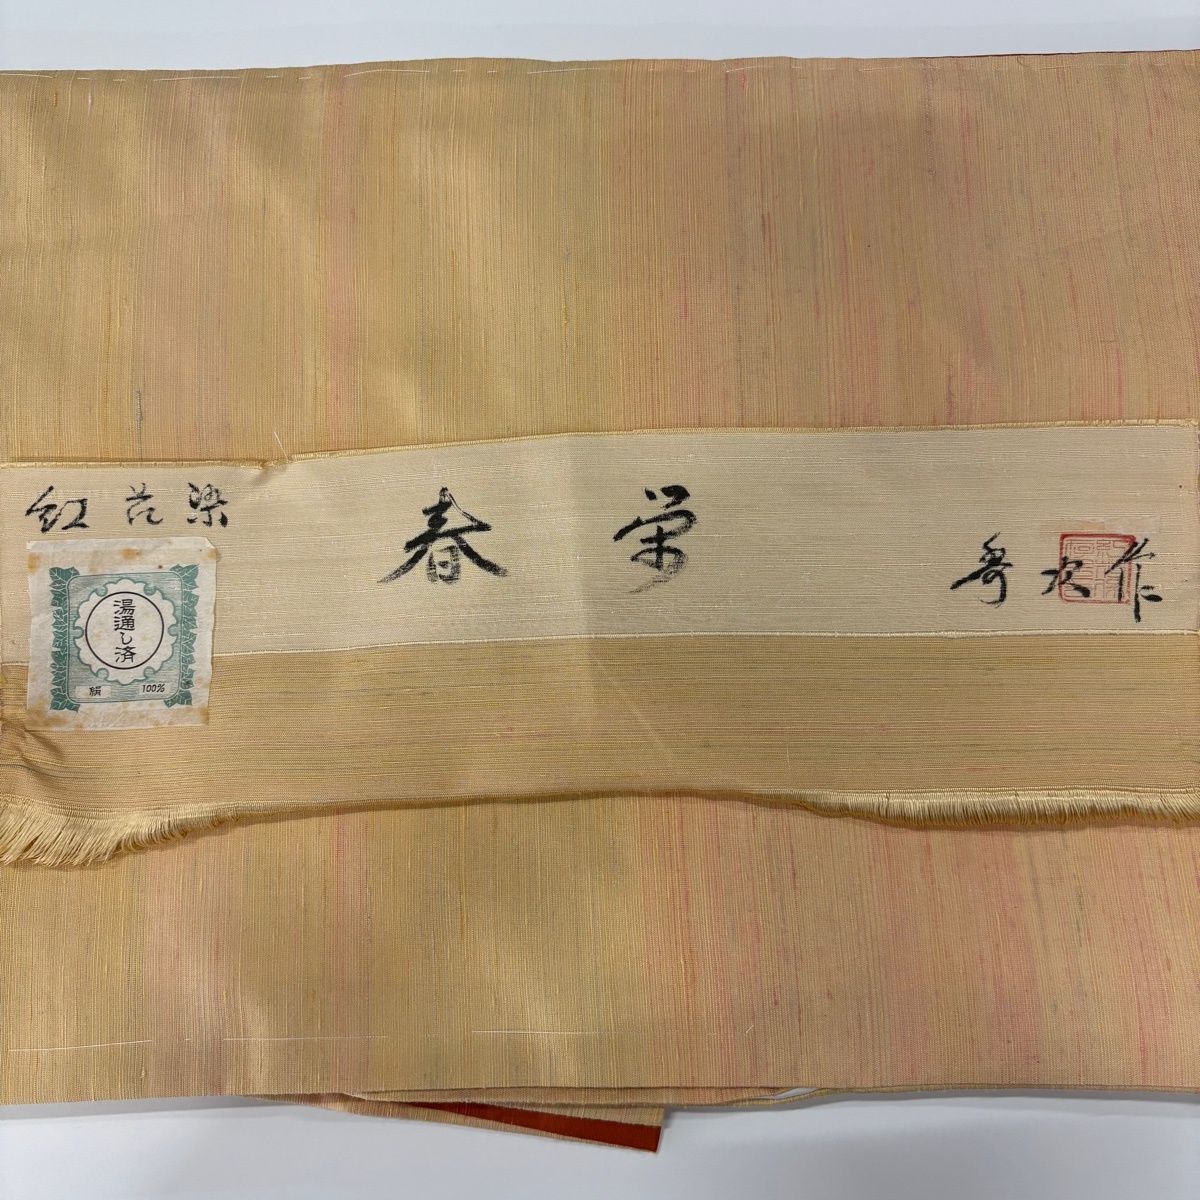 紅花染
春栄
秀次作
湯通し済
絹 100%